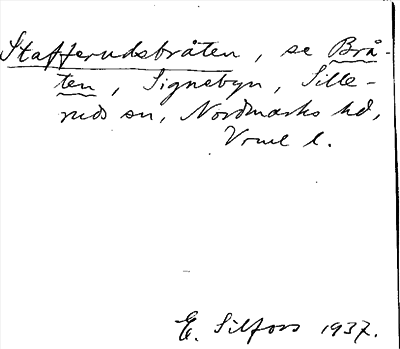 Stafferudsbråten, se Brå-
ten, Signebyn, Sille-
ruds sn, Nordmarks hd,
Vrml l.
E. Silfors 1937.